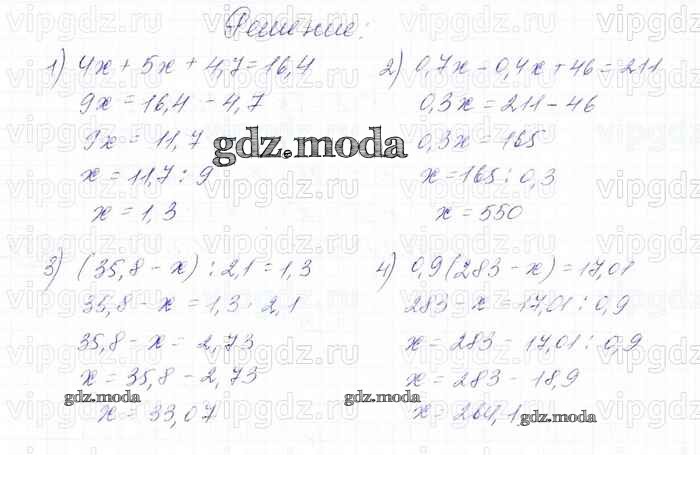 Решение:
1) 4x + 5x + 4,7 = 16,4
9x = 16,4 - 4,7
9x = 11,7
x = 11,7 : 9
x = 1,3
2) 0,7x - 0,4x + 46 = 211
0,3x = 211 - 46
0,3x = 165
x = 165 : 0,3
x = 550
3) (35,8 - x) : 2,1 = 1,3
35,8 - x = 1,3 · 2,1
35,8 - x = 2,73
x = 35,8 - 2,73
x = 33,07
4) 0,9(283 - x) = 17,01
283 - x = 17,01 : 0,9
x = 283 - 17,01 : 0,9
x = 283 - 18,9
x = 264,1
gdz.moda
gdz.moda
gdz.moda
gdz.moda
vipgdz.ru vipgdz.ru vipgdz.ru vipgdz.ru